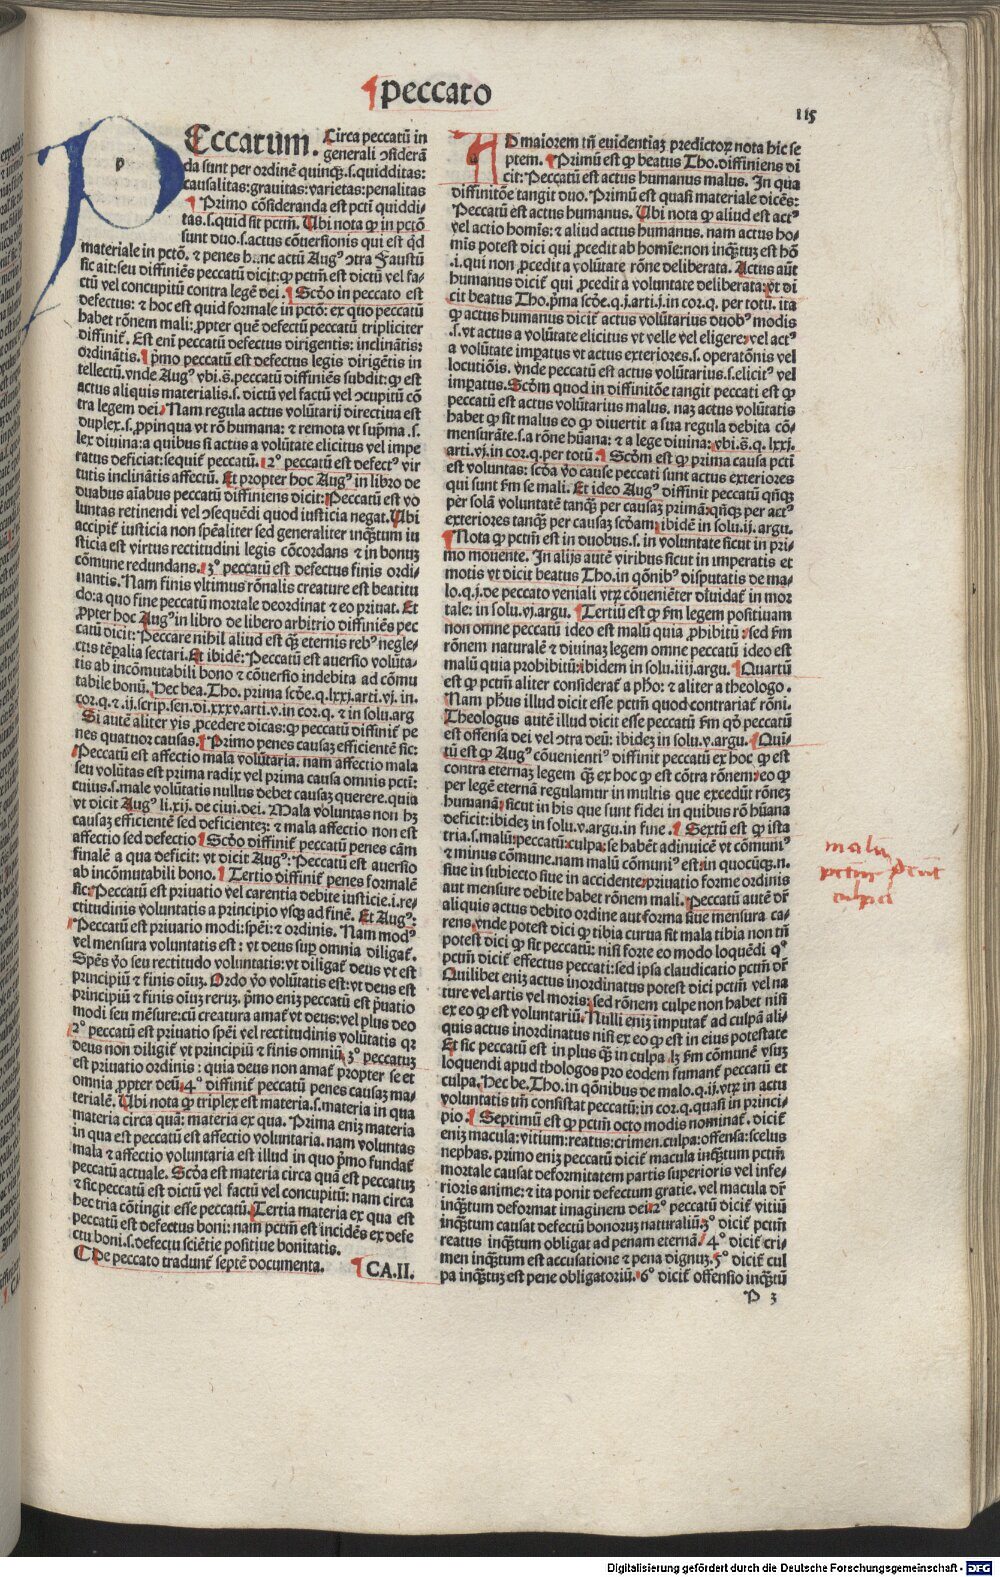 ¶peccato
115
PEccatum. Circa peccatū in
generali ꝯsiderā
da sunt per ordinē quinqꝫ.s.quidditas:
causalitas:grauitas:varietas:penalitas
¶Primo cōsideranda est pcti quiddi⸗
tas.s.quid sit pctm̄. Ubi nota ꝙ in pctō
sunt duo.s.actus cōuersionis qui est qd̄
materiale in pctō. ⁊ penes hunc actū Augꝰ ꝯtra Faustū
sic ait:seu diffiniēs peccatū dicit:ꝙ pctm̄ est dictū vel fa⸗
ctū vel concupitū contra legē dei.¶Scd̄o in peccato est
defectus: ⁊ hoc est quid formale in pctō: ex quo peccatū
habet rōnem mali:ꝓpter quē defectū peccatū tripliciter
diffinit̄. Est eni peccatū defectus dirigentis: inclināntis:
ordinātis.¶pͥmo peccatū est defectus legis dirigētis in
tellectū.vnde Augꝰ vbi.s̄.peccatū diffiniēs subdit:ꝙ est
actus aliquis materialis.s. dictū vel factū vel ꝯcupitū cō
tra legem dei.Nam regula actus volūtarij directiua est
duplex.s.ꝓpinqua vt rō humana: ⁊ remota vt supͥma .s.
lex diuina:a quibus si actus a volūtate elicitus vel impe
ratus deficiat:sequit̄ peccatū.¶2° peccatū est defectꝰ vir
tutis inclinātis affectū. Et propter hoc Augꝰ in libro de
duabus aīabus peccatū diffiniens dicit:Peccatū est vo
luntas retinendi vel ꝯsequēdi quod iusticia negat.Ubi
accipit̄ iusticia non sp̄ealiter sed generaliter inqͣtum iu
sticia est virtus rectitudini legis cōcordans ⁊ in bonuꝫ
cōmune redundans.¶3° peccatū est defectus finis ordi⸗
nantis.Nam finis vltimus rōnalis creature est beatitu
do:a quo fine peccatū mortale deordinat ⁊ eo priuat. Et
ꝓpter hoc Augꝰ in libro de libero arbitrio diffiniēs pec
catū dicit:Peccare nihil aliud est qͣ eternis rebꝰ negle⸗
ctis tēpralia sectari.Et ibidē:Peccatū est auersio volūta⸗
tis ab incōmutabili bono ⁊ cōuersio indebita ad cōmu
tabile bonū. Hec bea.Tho. prima scd̄e.q.lxxi.arti.vj. in.
cor.q. ⁊ .ij.scrip.sen.di.xxxv.arti.v.in cor.q. ⁊ in solu.arg
Si autē aliter vis ꝓcedere dicas:ꝙ peccatū diffinit̄ pe
nes quatuor causas.¶Primo penes causaꝫ efficientē sic:
Peccatū est affectio mala volūtaria. nam affectio mala
seu volūtas est prima radix vel prima causa omnis pcti:
cuius.s.male volūtatis nullus debet causaꝫ querere.quia
vt dicit Augꝰ li.xij.de ciui.dei. Mala voluntas non hꝫ
causaꝫ efficientē sed deficienteꝫ: ⁊ mala affectio non est
affectio sed defectio¶Scd̄o diffinit̄ peccatū penes cām
finalē a qua deficit: vt dicit Augꝰ: Peccatū est auersio
ab incōmutabili bono.¶Tertio diffinit̄ penes formalē
sic:Peccatū est priuatio vel carentia debite iusticie.i.re⸗
ctitudinis voluntatis a principio vsqꝫ ad finē. Et Augꝰ:
Peccatū est priuatio modi:sp̄ei: ⁊ ordinis. Nam modꝰ
vel mensura voluntatis est : vt deus suꝑ omnia diligat̄.
Sp̄es v̄o seu rectitudo voluntatis:vt diligat̄ deus vt est
principiū ⁊ finis oīuꝫ. Ordo v̄o volūtatis est:vt deus est
principiū ⁊ finis oīuꝫ reruꝫ. pͥmo eniꝫ peccatū est pͥuatio
modi seu mēsure:cū creatura amat̄ vt deus:vel plus deo
2° peccatū est priuatio sp̄ei vel rectitudinis volūtatis qꝛ
deus non diligit̄ vt principiū ⁊ finis omniū.3° peccatuꝫ
est priuatio ordinis : quia deus non amat̄ propter se et
omnia ꝓpter deū.4° diffinit̄ peccatū penes causaꝫ ma⸗
terialē. Ubi nota ꝙ triplex est materia.s.materia in qua
materia circa quā: materia ex qua. Prima eniꝫ materia
in qua est peccatū est affectio voluntaria. nam voluntas
mala ⁊ affectio voluntaria est illud in quo pͥmo fundat̄
peccatū actuale. Scd̄a est materia circa quā est peccatuꝫ
⁊ sic peccatū est dictū vel factū vel concupitū: nam circa
hec tria cōtingit esse peccatū.Tertia materia ex qua est
peccatū est defectus boni: nam pctm̄ est incidēs ex defe
ctu boni.s.defectu sciētie positiue bonitatis.
¶De peccato tradunt̄ septē documenta. ¶CA.II.
AD maiorem tn̄ euidentiaꝫ predictoꝝ nota hic se
ptem.¶Primū est ꝙ beatus Tho.diffiniens di
cit:Peccatū est actus humanus malus. In qua
diffinitōe tangit duo. Primū est quasi materiale dicēs:
Peccatū est actus humanus. Ubi nota ꝙ aliud est actꝰ
vel actio homīs: ⁊ aliud actus humanus. nam actus ho⸗
mīs potest dici qui ꝓcedit ab homīe:non inqͣtuꝫ est hō
.i.qui non ꝓcedit a volūtate rōne deliberata. Actus aūt
humanus dicit̄ qui ꝓcedit a voluntate deliberata:vt di
cit beatus Tho.pͥma scd̄e.q.j.arti.j.in cor.q. per totū. ita
ꝙ actus humanus dicit̄ actus volūtarius duobꝰ modis
.s.vt actus a volūtate elicitus vt velle vel eligere:vel actꝰ
a volūtate imꝑatus vt actus exteriores.s. operatōnis vel
locutiōis. vnde peccatū est actus volūtarius.s.elicitꝰ vel
imꝑatus.Scd̄m quod in diffinitōe tangit peccati est ꝙ
peccatū est actus volūtarius malus. naꝫ actus volūtatis
habet ꝙ sit malus eo ꝙ diuertit a sua regula debita cō⸗
mensurāte.s.a rōne hūana: ⁊ a lege diuina:vbi.s̄.q. lxxj.
arti.vj.in cor.q.per totū.¶Scd̄m est ꝙ prima causa pcti
est voluntas: scd̄a v̄o cause peccati sunt actus exteriores
qui sunt s̄m se mali. Et ideo Augꝰ diffinit peccatū qn̄qꝫ
per solā voluntatē tanqͣ per causaꝫ primā:qn̄qꝫ per actꝰ
exteriores tanqͣ per causaꝫ scd̄am:ibidē in solu.ij.argu.
¶Nota ꝙ pctm̄ est in duobus.s. in voluntate sicut in pri⸗
mo mouente. In alijs autē viribus sicut in imperatis et
motis vt dicit beatus Tho.in qōnibꝰ disputatis de ma⸗
lo.q.j.de peccato veniali vtꝝ cōueniēter diuidat̄ in mor
tale: in solu.vj.argu. ¶Tertiū est ꝙ s̄m legem positiuam
non omne peccatū ideo est malū quia ꝓhibitū :sed s̄m
rōnem naturalē ⁊ diuinaꝫ legem omne peccatū ideo est
malū quia prohibitū:ibidem in solu.iiij.argu.¶Quartū
est ꝙ pctm̄ aliter considerat̄ a ph̄o: ⁊ aliter a theologo.
Nam ph̄us illud dicit esse pctm̄ quod contrariat̄ rōni.
Theologus autē illud dicit esse peccatū s̄m qd̄ peccatū
est offensa dei vel ꝯtra deū: ibidez in solu.v.argu.¶Quī⸗
tū est ꝙ Augꝰ cōuenientiꝰ diffinit peccatū ex hoc ꝙ est
contra eternaꝫ legem qͣ ex hoc ꝙ est cōtra rōnem:eo ꝙ
per legē eternā regulamur in multis que excedūt rōneꝫ
humanā:sicut in his que sunt fidei in quibus rō hūana
deficit:ibidez in solu.v.argu.in fine.¶Sextū est ꝙ ista
tria.s.malū:peccatū:culpa:se habēt adinuicē vt cōmuniꝰ
⁊ minus cōmune.nam malū cōmuniꝰ est:in quocūqꝫ.n.
siue in subiecto siue in accidente:priuatio forme ordinis
aut mensure debite habet rōnem mali.Peccatū autē dr̄
aliquis actus debito ordine aut forma siue mensura ca⸗
rens.vnde potest dici ꝙ tibia curua sit mala tibia non tn̄
potest dici ꝙ sit peccatū: nisi forte eo modo loquēdi qͦ
pctm̄ dicit̄ effectus peccati:sed ipsa claudicatio pctm̄ dr̄
Quilibet eniꝫ actus inordinatus potest dici pctm̄ vel na
ture vel artis vel moris:sed rōnem culpe non habet nisi
ex eo ꝙ est voluntariū.Nulli eniꝫ imputat̄ ad culpā ali⸗
quis actus inordinatus nisi ex eo ꝙ est in eius potestate
Et sic peccatū est in plus qͣ in culpa .lꝫ s̄m cōmunē vsuꝫ
loquendi apud thologos pro eodem sumant̄ peccatū et
culpa.Hec be.Tho.in qōnibus de malo.q.ij.vtꝝ in actu
voluntatis tm̄ consistat peccatū:in cor.q.quasi in princi⸗
pio.¶Septimū est ꝙ pctm̄ octo modis nominat̄. dicit̄
eniꝫ macula:vitium:reatus:crimen.culpa:offensa:scelus
nephas. primo eniꝫ peccatū dicit̄ macula inqͣtum pctm̄
mortale causat deformitatem partis superioris vel infe⸗
rioris anime: ⁊ ita ponit defectum gratie. vel macula dr̄
inqͣtum deformat imaginem dei.2° peccatū dicit̄ vitiū
inqͣtum causat defectū bonoruꝫ naturaliū.3° dicit̄ pctm̄
reatus inqͣtum obligat ad penam eternā.4° dicit̄ cri⸗
men inqͣtum est accusatione ⁊ pena dignuꝫ.5° dicit̄ cul
pa inqͣtuꝫ est pene obligatoriū.6° dicit̄ offensio inqͣtū
P 3
malū
pctm̄
culpa
Digitalisierung gefördert durch die Deutsche Forschungsgemeinschaft - DFG